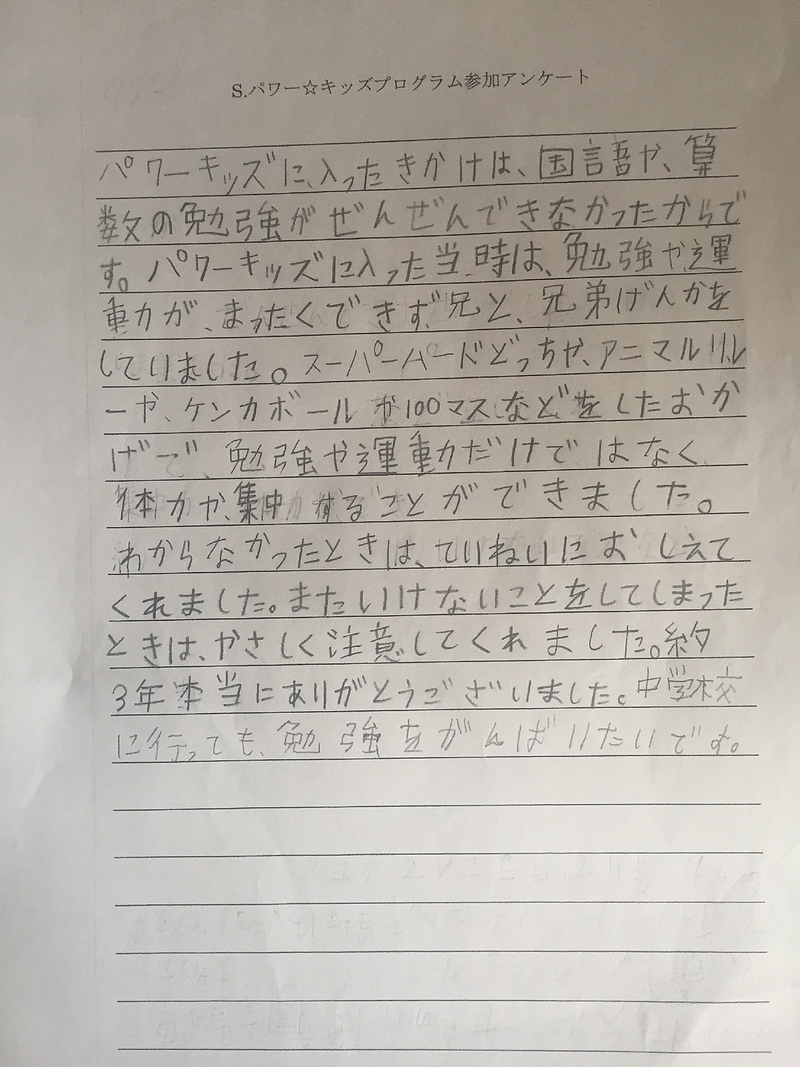 S.パワー☆キッズプログラム参加アンケート
パワーキッズに、入ったきかけは、国言語や、算
数の勉強がぜんぜんできなかったからで
す。パワーキッズに入った当時は、勉強や運
動力が、まったくできず兄と、兄弟げんかを
していました。スーパーバードどっちや、アニマルリレ
ーや、ケンカボールか100マスなどをしたおか
げで、勉強や運動力だけではなく
体力や、集中することができました。
わからなかったときは、ていねいにおしえて
くれました。またいけないことをしてしまった
ときは、やさしく注意してくれました。約
3年本当にありがとうございました。中学校
に行っても、勉強をがんばりたいです。